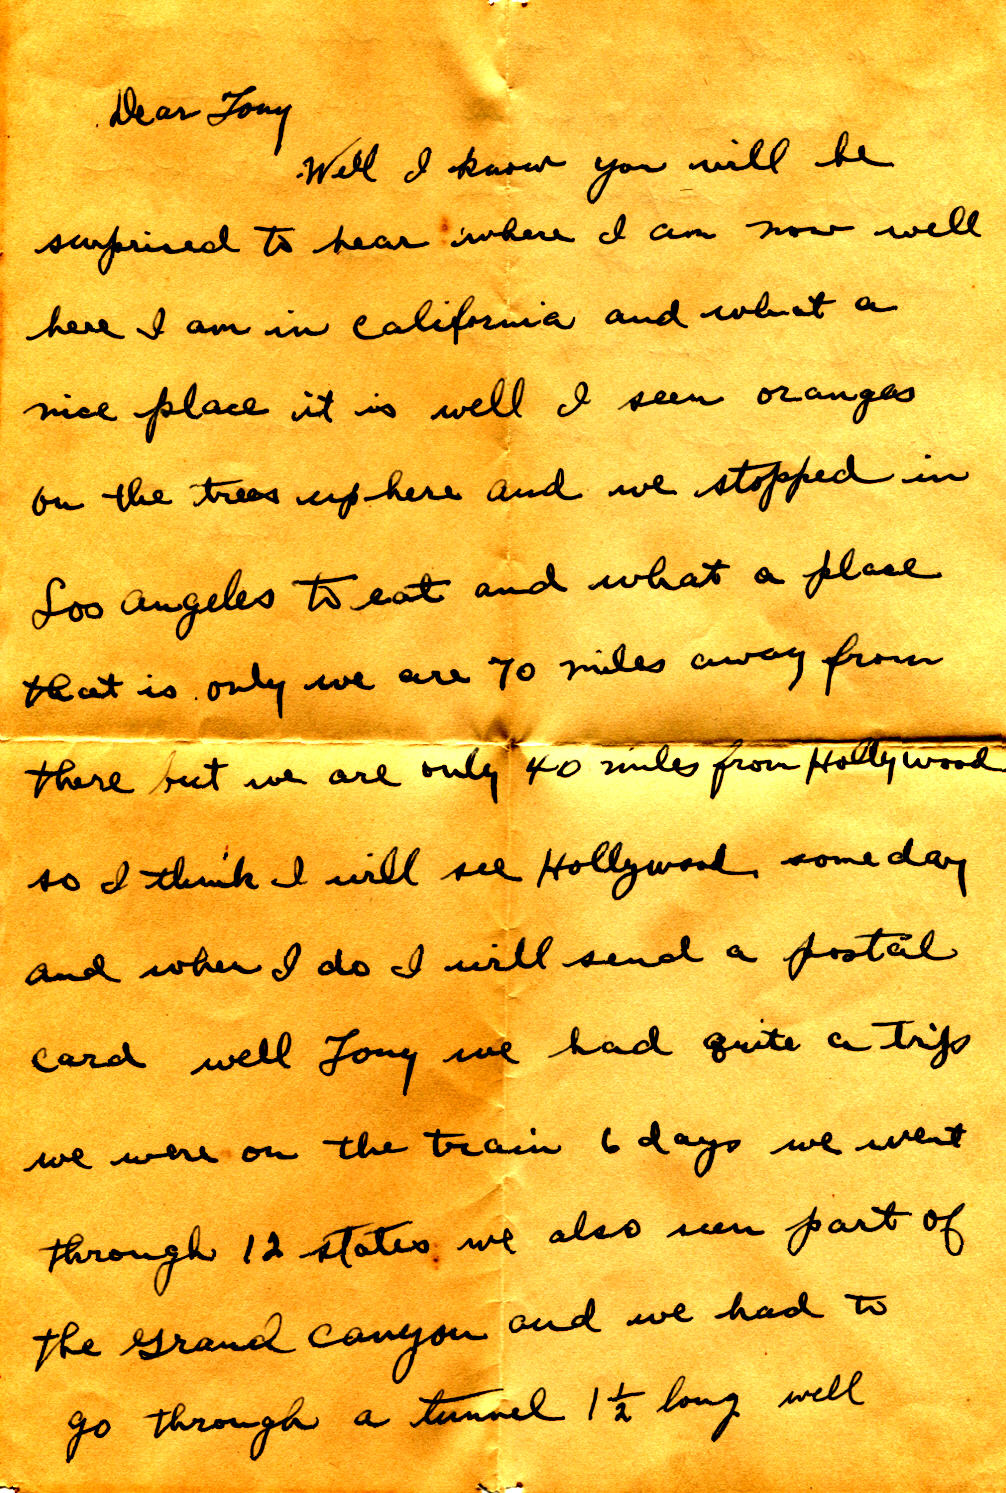 Dear Tony
Well I know you will be
surprised to hear where I am now well
here I am in california and what a
nice place it is well I seen oranges
on the trees up here and we stopped in
Los Angeles to eat and what a place
that is only we are 70 miles away from
there but we are only 40 miles from Hollywood
so I think I will see Hollywood some day
and when I do I will send a postal
card well Tony we had quite a trip
we were on the train 6 days we went
through 12 states we also seen part of
the Grand Canyon and we had to
go through a tunnel 1½ long well